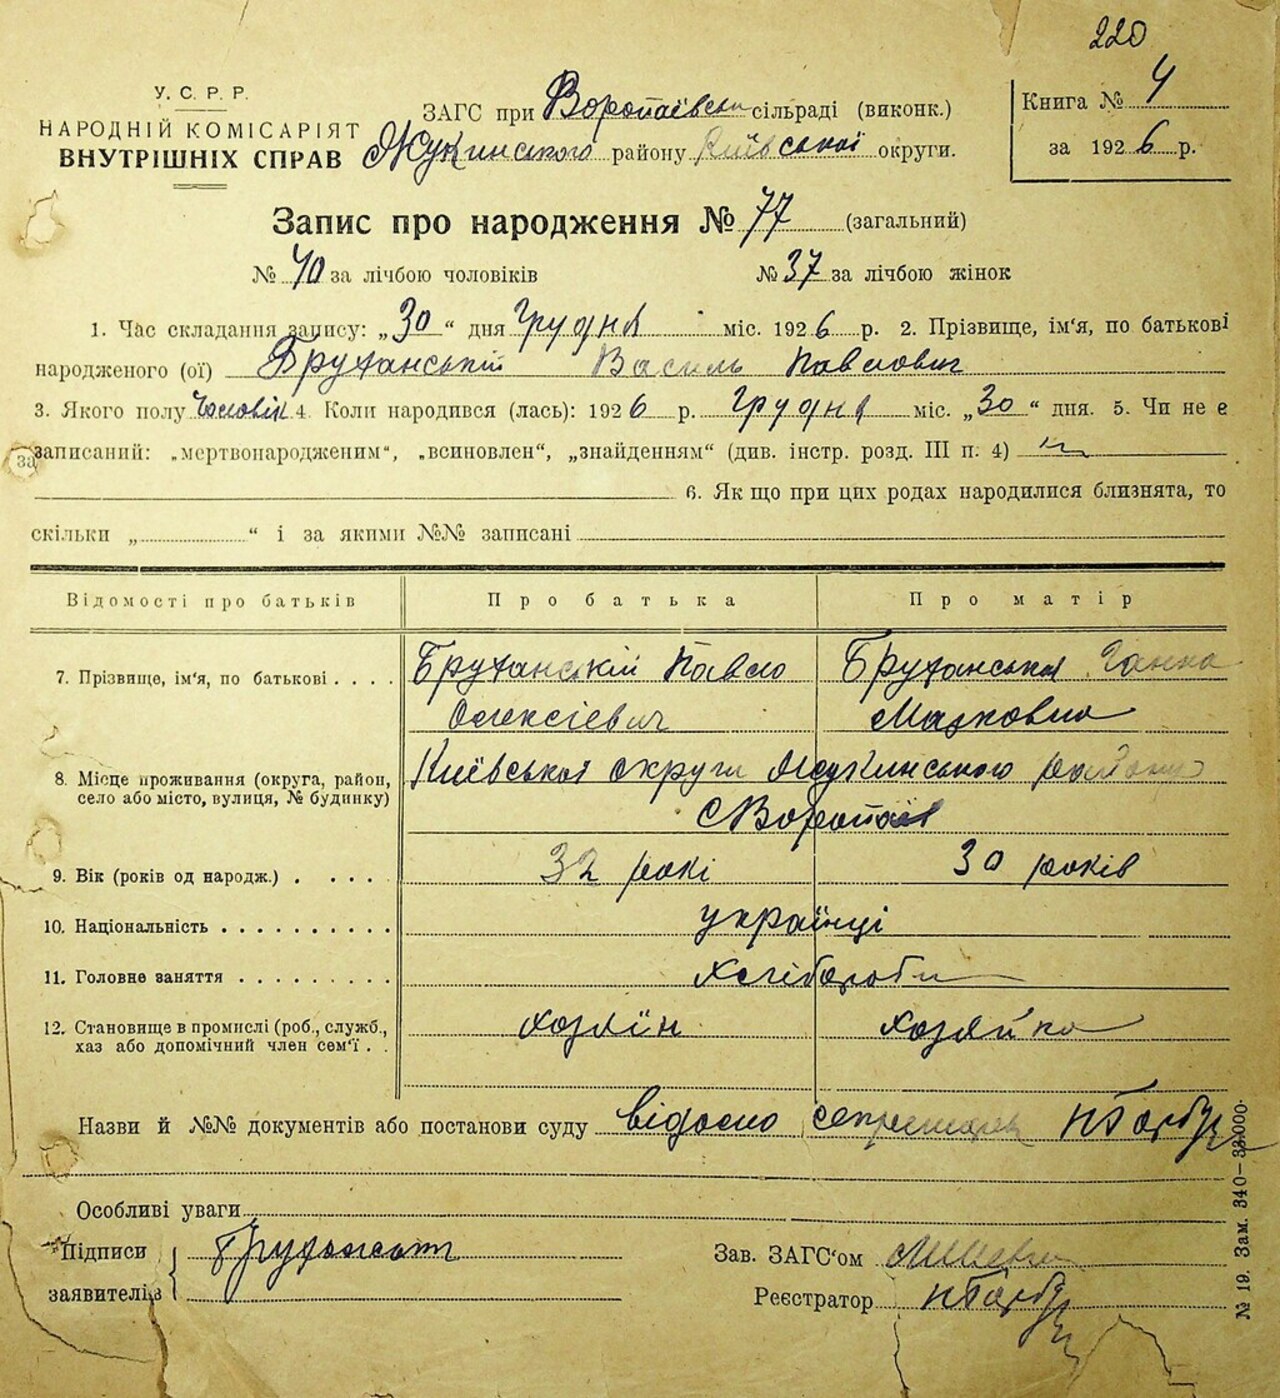 220
У. С. Р. Р.
НАРОДНІЙ КОМІСАРІЯТ
ВНУТРІШНІХ СПРАВ
ЗАГС при Воропаївськ сільраді (виконк.)
Жукинського району Київської округи.
Книга № 4
за 1926 р.
Запис про народження № 77 (загальний)
№ 40 за лічбою чоловіків № 37 за лічбою жінок
1. Час складання запису: „30“ дня Грудня міс. 1926 р. 2. Прізвище, ім‘я, по батькові
народженого (ої) Бруханській Василь Павлович
3. Якого полу Чоловік 4. Коли народився (лась): 1926 р. Грудня міс. „30“ дня. 5. Чи не є
записаний: „мертвонародженим“, „всиновлен“, „знайденням“ (див. інстр. розд. III п. 4)
за
6. Як що при цих родах народилися близнята, то
скільки „ “ і за якими №№ записані
Відомості про батьків Про батька Про матір
7. Прізвище, ім‘я, по батькові Бруханській Павло Бруханська Ганна
Олексієвич Марковна
8. Місце проживання (округа, район, село або місто, вулиця, № будинку) Київської округи Жукинського району
с Воропаїв
9. Вік (років од народж.) 32 рокі 30 років
10. Національність українці
11. Головне заняття Хлібороби
12. Становище в промислі (роб., служб., хаз або допомічний член сем‘ї хозяїн хозяйка
Назви й №№ документів або постанови суду відомо секретарю
Особливі уваги
Підписи
заявителів
Зав. ЗАГС‘ом
Реєстратор
№ 19. Зам. 340—33.000.